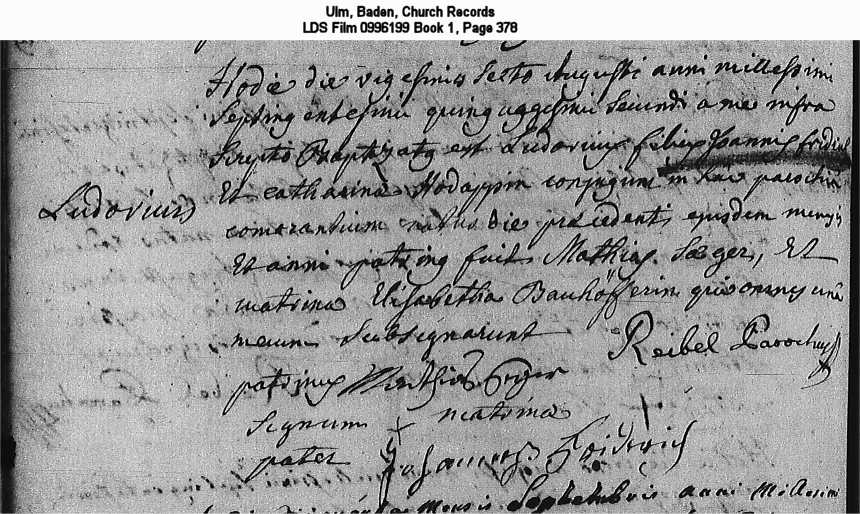 Ulm, Baden, Church Records
LDS Film 0996199 Book 1, Page 378
Hodie die vigesimo sexto Augusti anni millesimi
septingentesimi quinquagesimi secundi a me infra
scripto Baptizatus est Ludovicus filius Joannis fridrich
Et catharina Hodappin conjugum in hac parochia
Ludovicus
comorantium natus die praecedenti ejusdem mensis
Et anni patrinus fuit Mathias Seeger, Et
matrina Elisabetha Bauhöfferin qui omnes una
mecum subsignarunt
Reibel Parochus
patrinus Mathias
signum + matrina
pater Johannes Fridrich
mensis Septembris anni Millesimi